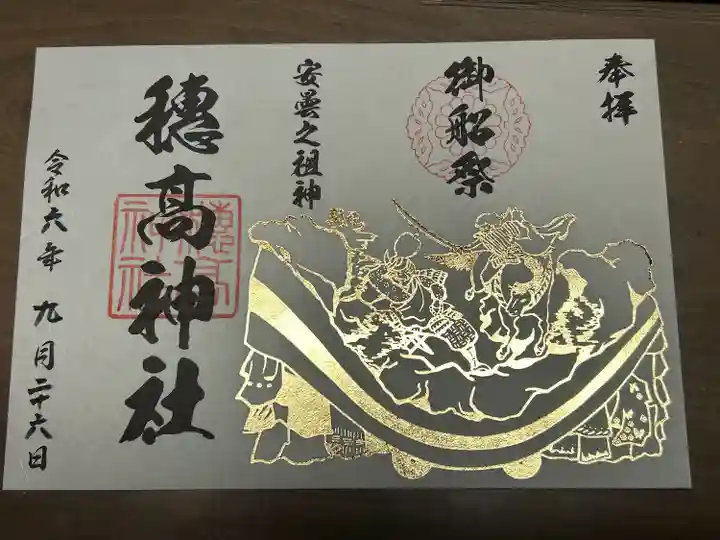 奉拝
御船祭
安曇之祖神
穂高神社
穗高神社
令和六年 九月二十六日